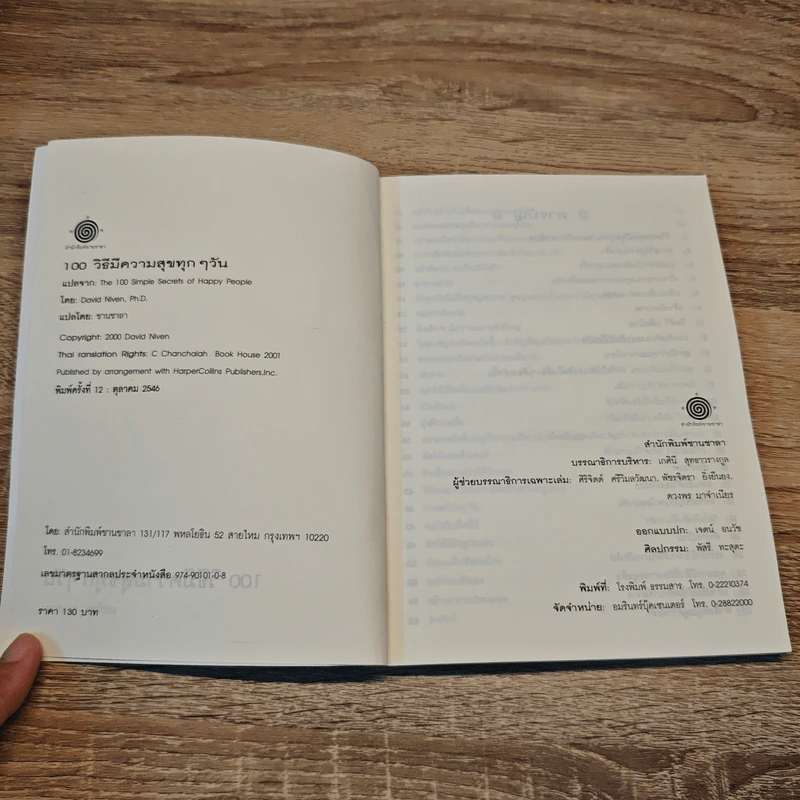 สำนักพิมพ์ชานชาลา
100 วิธีมีความสุขทุก ๆ วัน
แปลจาก: The 100 Simple Secrets of Happy People
โดย: David Niven, Ph.D.
แปลโดย: ชานชาลา
Copyright: 2000 David Niven
Thai ranslation Rights: C Chanchalah Book House 2001
Published by arrangement with HarperCollins Publishers,Inc.
พิมพ์ครั้งที่ 12 : ตุลาคม 2546
โดย: สำนักพิมพ์ชานชาลา 131/117 พหลโยธิน 52 สายไหม กรุงเทพฯ 10220
โทร. 01-8234699
เลขมาตรฐานสากลประจำหนังสือ 974-90101-0-8
ราคา 130 บาท
สำนักพิมพ์ชานชาลา
สำนักพิมพ์ชานชาลา
บรรณาธิการบริหาร: เกศินี สุทธาวรางกูล
ผู้ช่วยบรรณาธิการเฉพาะเล่ม: ศิริจิตต์ ศรีวิมลวัฒนา, พัชรจิตรา อิ่งยืนยง,
ดวงพร มาจำเนียร
ออกแบบปก: เจตน์ ธนวัช
ศิลปกรรม: พัสรี ทะสุดะ
พิมพ์ที่: โรงพิมพ์ ธรรมสาร โทร. 0-2221037​4
จัดจำหน่าย: อมรินทร์บุ๊คเซนเตอร์ โทร. 0-28822000